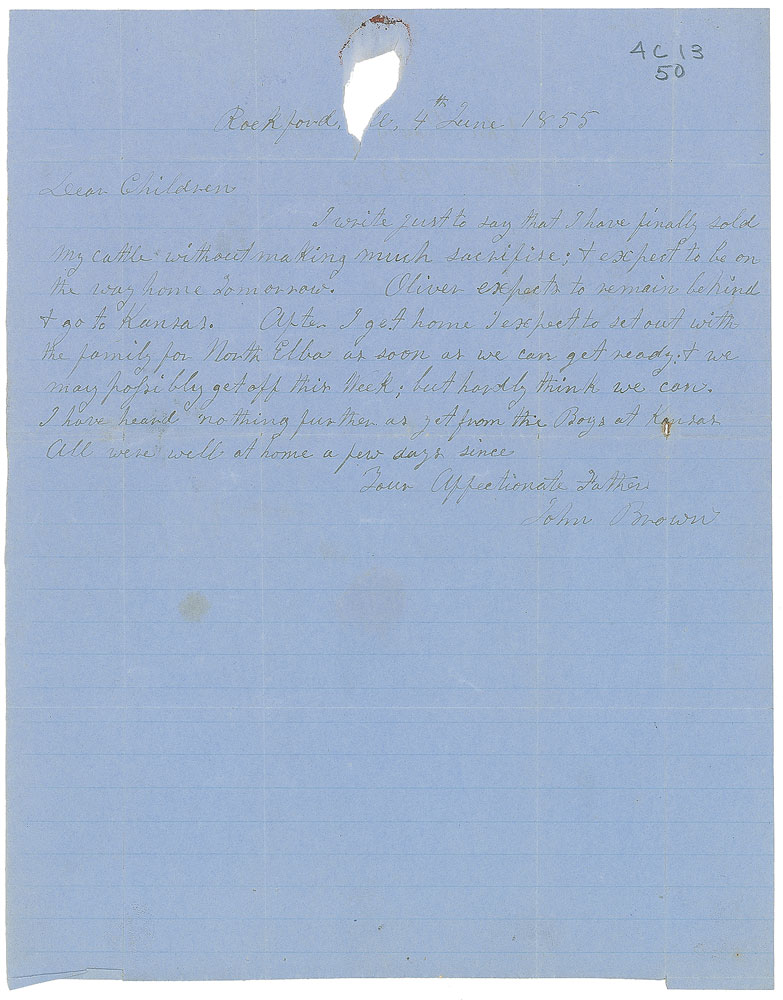 4C13
50
Rockford, Ill, 4th June 1855
Dear Children
I write just to say that I have finally sold
my cattle without making much sacrifise; & expect to be on
the way home Tomorrow. Oliver expects to remain behind
& go to Kansas. After I get home I expect to set out with
the family for North Elba as soon as we can get ready: & we
may possibly get off this Week; but hardly think we can.
I have heard nothing further as yet from the Boys at Kansas
All were well at home a few days since
Your Affectionate Father
John Brown